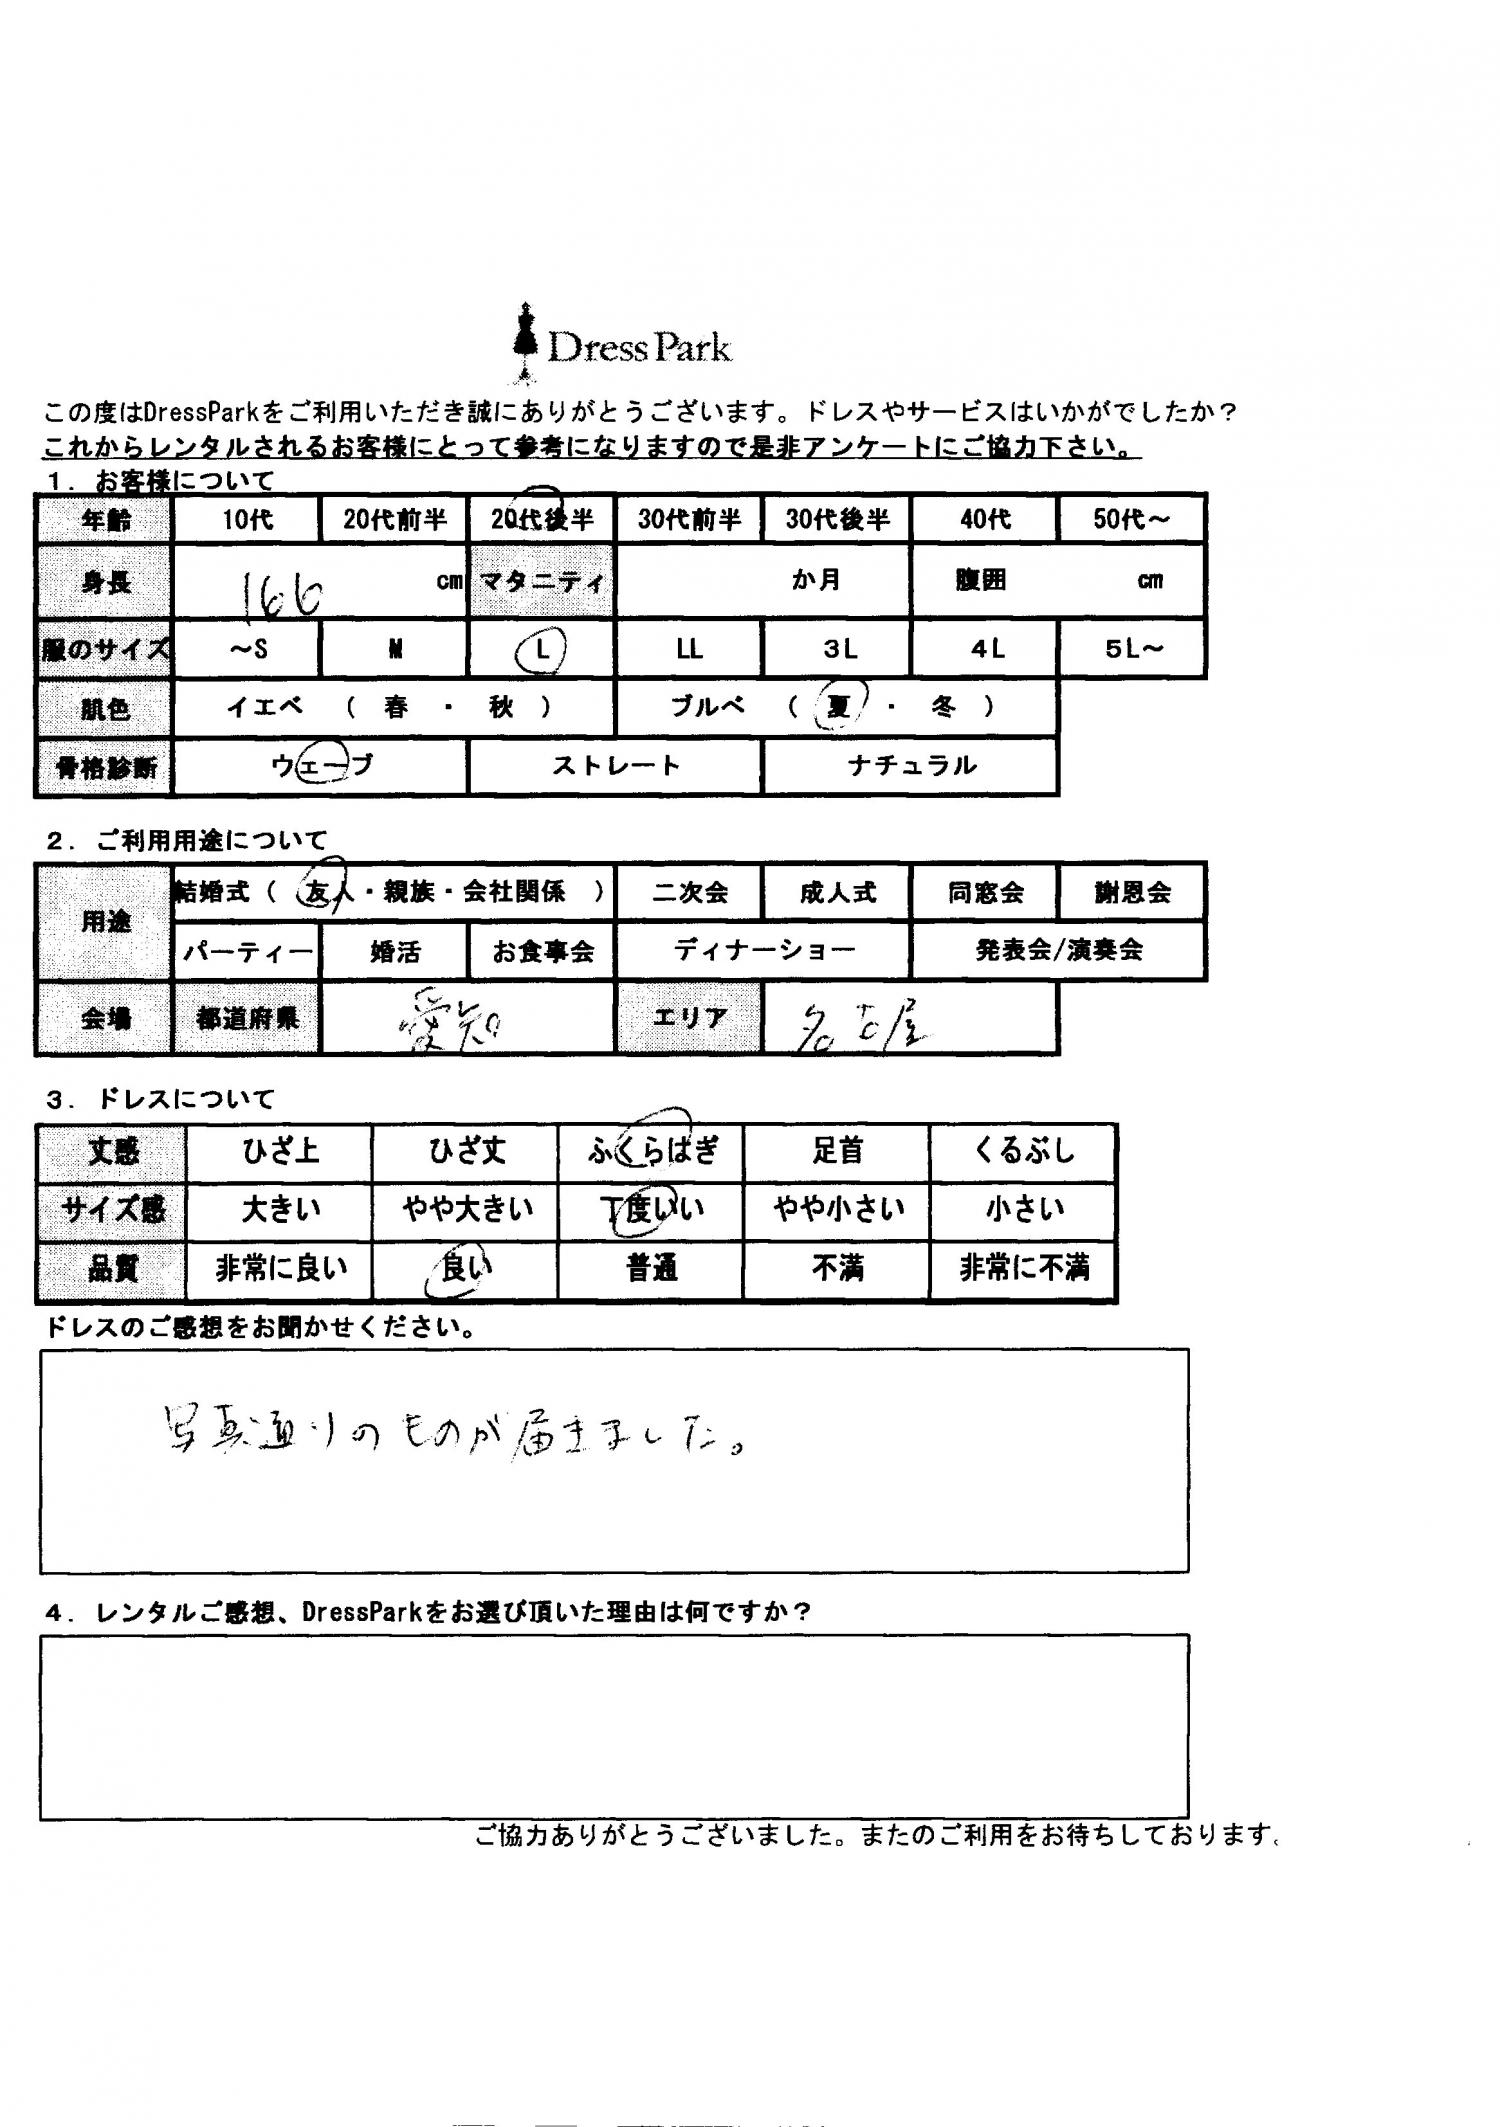 Dress Park
この度はDressParkをご利用いただき誠にありがとうございます。ドレスやサービスはいかがでしたか？
これからレンタルされるお客様にとって参考になりますので是非アンケートにご協力下さい。
１．お客様について
年齢 10代 20代前半 20代後半 30代前半 30代後半 40代 50代～
身長 166 cm マタニティ か月 腹囲 cm
服のサイズ ～S M L LL 3L 4L 5L～
肌色 イエベ （ 春 ・ 秋 ） ブルベ （ 夏 ・ 冬 ）
骨格診断 ウェーブ ストレート ナチュラル
２．ご利用用途について
用途 結婚式（ 友人・親族・会社関係 ） 二次会 成人式 同窓会 謝恩会
パーティー 婚活 お食事会 ディナーショー 発表会/演奏会
会場 都道府県 愛知 エリア 名古屋
３．ドレスについて
丈感 ひざ上 ひざ丈 ふくらはぎ 足首 くるぶし
サイズ感 大きい やや大きい 丁度いい やや小さい 小さい
品質 非常に良い 良い 普通 不満 非常に不満
ドレスのご感想をお聞かせください。
写真通りのものが届きました。
４．レンタルご感想、DressParkをお選び頂いた理由は何ですか？
ご協力ありがとうございました。またのご利用をお待ちしております。